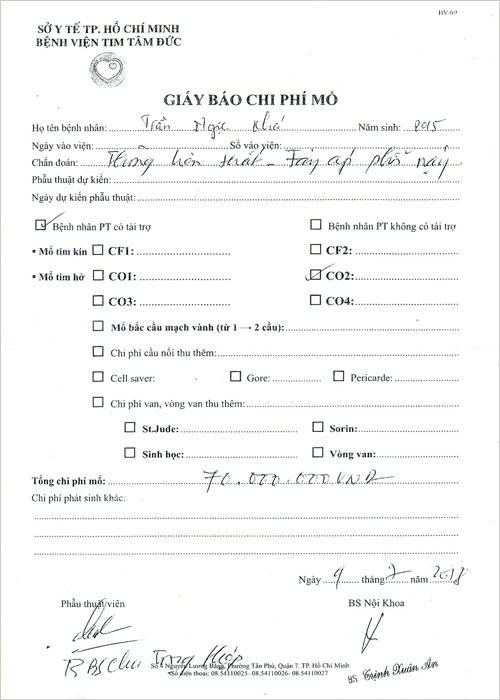 BV-60
SỞ Y TẾ TP. HỒ CHÍ MINH
BỆNH VIỆN TIM TÂM ĐỨC
GIẤY BÁO CHI PHÍ MỔ
Họ tên bệnh nhân: Trần Ngọc Khá Năm sinh: 2015
Ngày vào viện: Số vào viện:
Chẩn đoán: Thông liên thất - Tăng áp phổi nặng
Phẫu thuật dự kiến:
Ngày dự kiến phẫu thuật:
Bệnh nhân PT có tài trợ Bệnh nhân PT không có tài trợ
▪ Mổ tim kín CF1: CF2:
▪ Mổ tim hở CO1: CO2:
CO3: CO4:
Mổ bắc cầu mạch vành (từ 1 → 2 cầu):
Chi phí cầu nối thu thêm:
Cell saver: Gore: Pericarde:
Chi phí van, vòng van thu thêm:
St.Jude: Sorin:
Sinh học: Vòng van:
Tổng chi phí mổ: 70.000.000 VNĐ
Chi phí phát sinh khác:
Ngày 9 tháng 7 năm 2018
Phẫu thuật viên BS Nội Khoa
Hiệp
Số 4 Nguyễn Lương Bằng, Phường Tân Phú, Quận 7. TP. Hồ Chí Minh
Số điện thoại: 08.54110025- 08.54110026- 08.54110027
BS Trịnh Xuân An